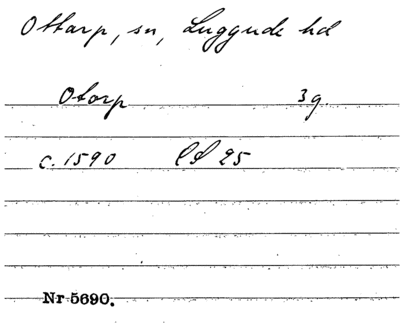 Ottarp, sn, Luggude hd
Otorp 3g.
c. 1590 LS 25
Nr 5690.